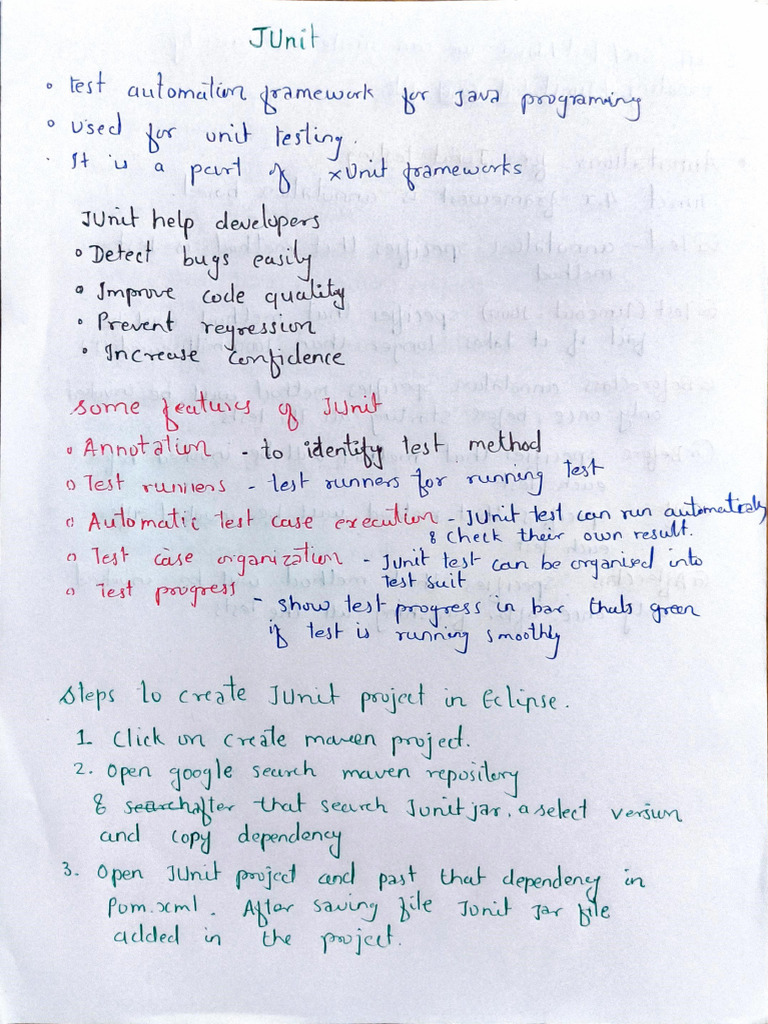 JUnit
• test automation framework for Java programing
• used for unit testing.
• It is a part of xUnit frameworks
JUnit help developers
• Detect bugs easily
• Improve code quality
• Prevent regression
• Increase confidence
Some features of JUnit
• Annotation - to identify test method
• Test runners - test runners for running test
• Automatic test case execution - JUnit test can run automatically
& check their own result.
• Test case organization - Junit test can be organised into
test suit
• Test progress - show test progress in bar thats green
if test is running smoothly
Steps to create JUnit project in Eclipse.
1. Click on create maven project.
2. Open google search maven repository
& search after that search Junit jar. a select version
and copy dependency
3. Open JUnit project and past that dependency in
Pom.xml. After saving file Junit Jar file
added in the project.